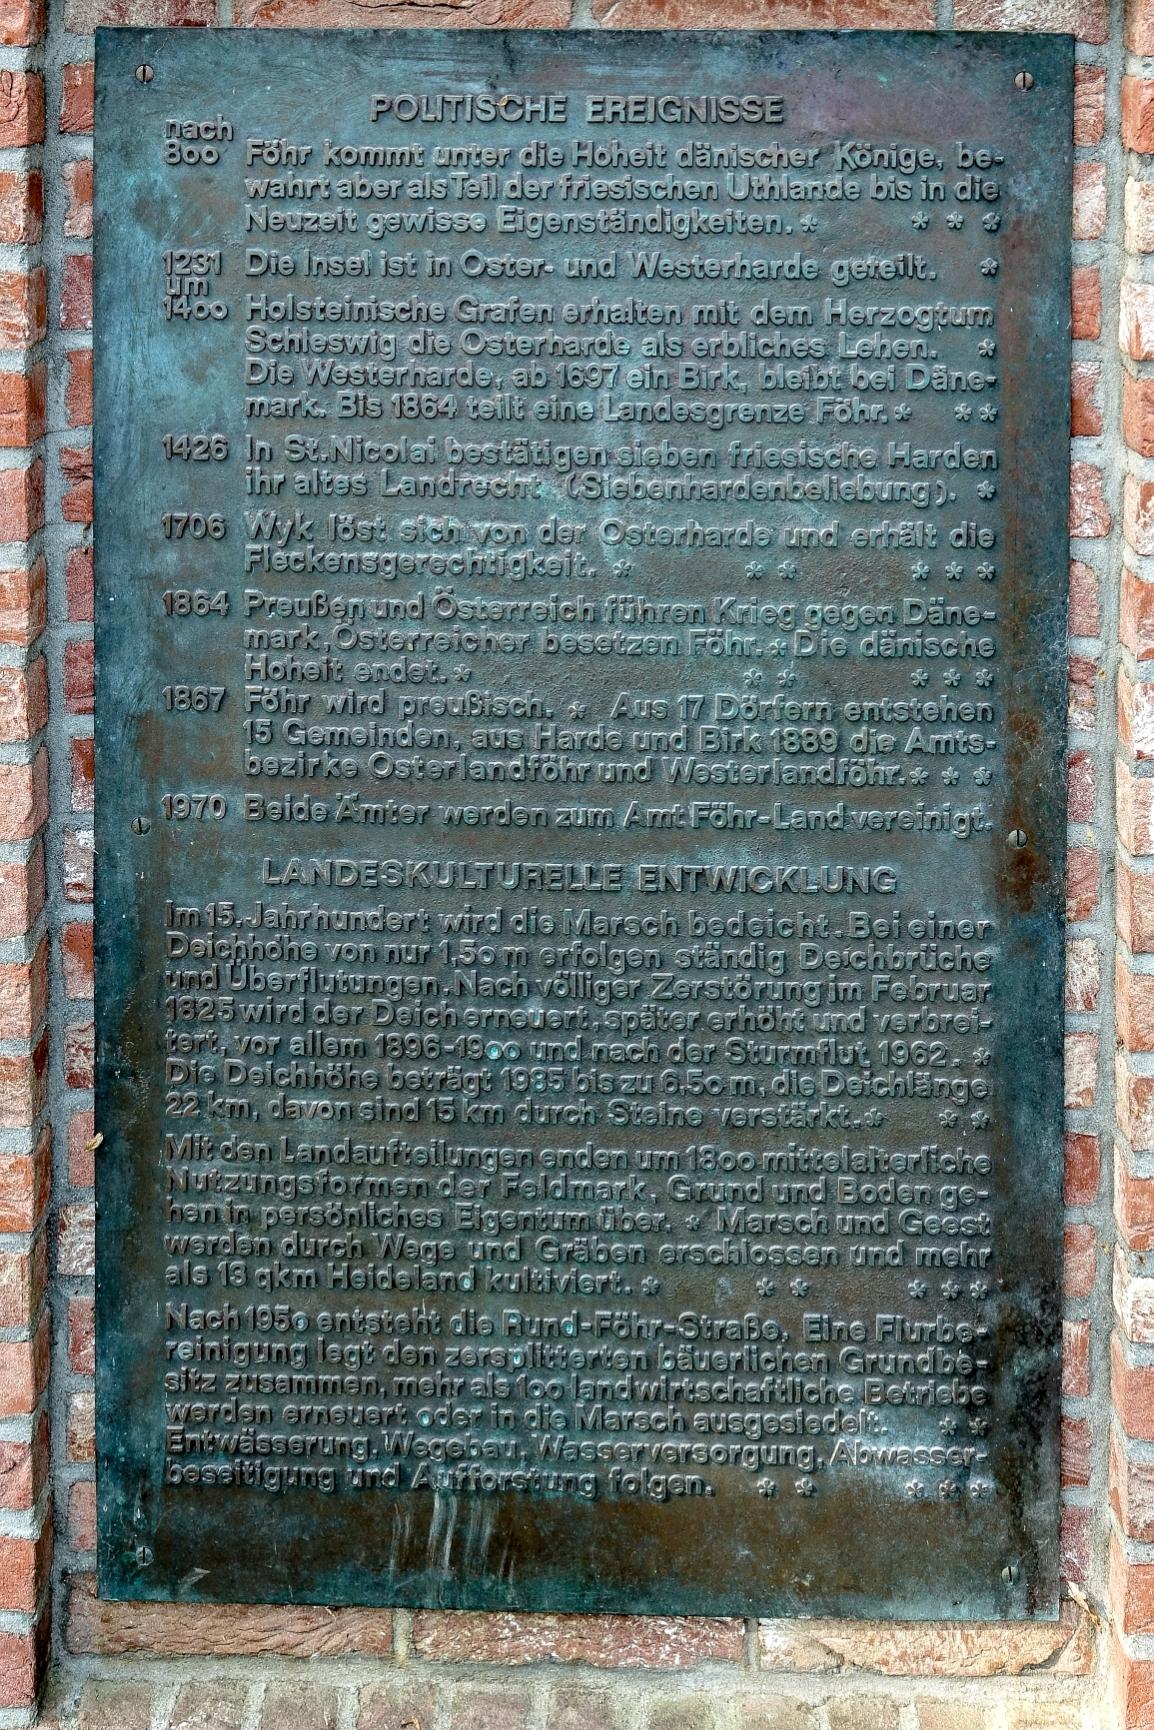 POLITISCHE EREIGNISSE
nach
800 Föhr kommt unter die Hoheit dänischer Könige, be-
wahrt aber als Teil der friesischen Uthlande bis in die
Neuzeit gewisse Eigenständigkeiten. * * * *
1231 Die Insel ist in Oster- und Westerharde geteilt. *
um
1400 Holsteinische Grafen erhalten mit dem Herzogtum
Schleswig die Osterharde als erbliches Lehen. *
Die Westerharde, ab 1697 ein Birk, bleibt bei Däne-
mark. Bis 1864 teilt eine Landesgrenze Föhr. * * *
1426 In St. Nicolai bestätigen sieben friesische Harden
ihr altes Landrecht (Siebenhardenbeliebung). *
1706 Wyk löst sich von der Osterharde und erhält die
Fleckensgerechtigkeit. * * * * * *
1864 Preußen und Österreich führen Krieg gegen Däne-
mark, Österreicher besetzen Föhr. * Die dänische
Hoheit endet. * * * * * *
1867 Föhr wird preußisch. * Aus 17 Dörfern entstehen
15 Gemeinden, aus Harde und Birk 1889 die Amts-
bezirke Osterlandföhr und Westerlandföhr. * * *
1970 Beide Ämter werden zum Amt Föhr-Land vereinigt.
LANDESKULTURELLE ENTWICKLUNG
Im 15. Jahrhundert wird die Marsch bedeicht. Bei einer
Deichhöhe von nur 1,50 m erfolgen ständig Deichbrüche
und Überflutungen. Nach völliger Zerstörung im Februar
1825 wird der Deich erneuert, später erhöht und verbrei-
tert, vor allem 1896-1900 und nach der Sturmflut 1962. *
Die Deichhöhe beträgt 1985 bis zu 6,50 m, die Deichlänge
22 km, davon sind 15 km durch Steine verstärkt. * * *
Mit den Landaufteilungen enden um 1800 mittelalterliche
Nutzungsformen der Feldmark, Grund und Boden ge-
hen in persönliches Eigentum über. * Marsch und Geest
werden durch Wege und Gräben erschlossen und mehr
als 13 qkm Heideland kultiviert. * * * * * *
Nach 1950 entsteht die Rund-Föhr-Straße. Eine Flurbe-
reinigung legt den zersplitterten bäuerlichen Grundbe-
sitz zusammen, mehr als 100 landwirtschaftliche Betriebe
werden erneuert oder in die Marsch ausgesiedelt. * *
Entwässerung, Wegebau, Wasserversorgung, Abwasser-
beseitigung und Aufforstung folgen. * * * * *